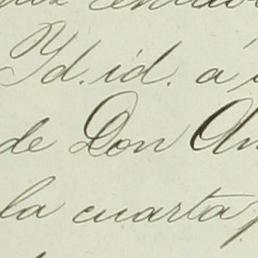 Yd. id. á
de Don An
la cuarta